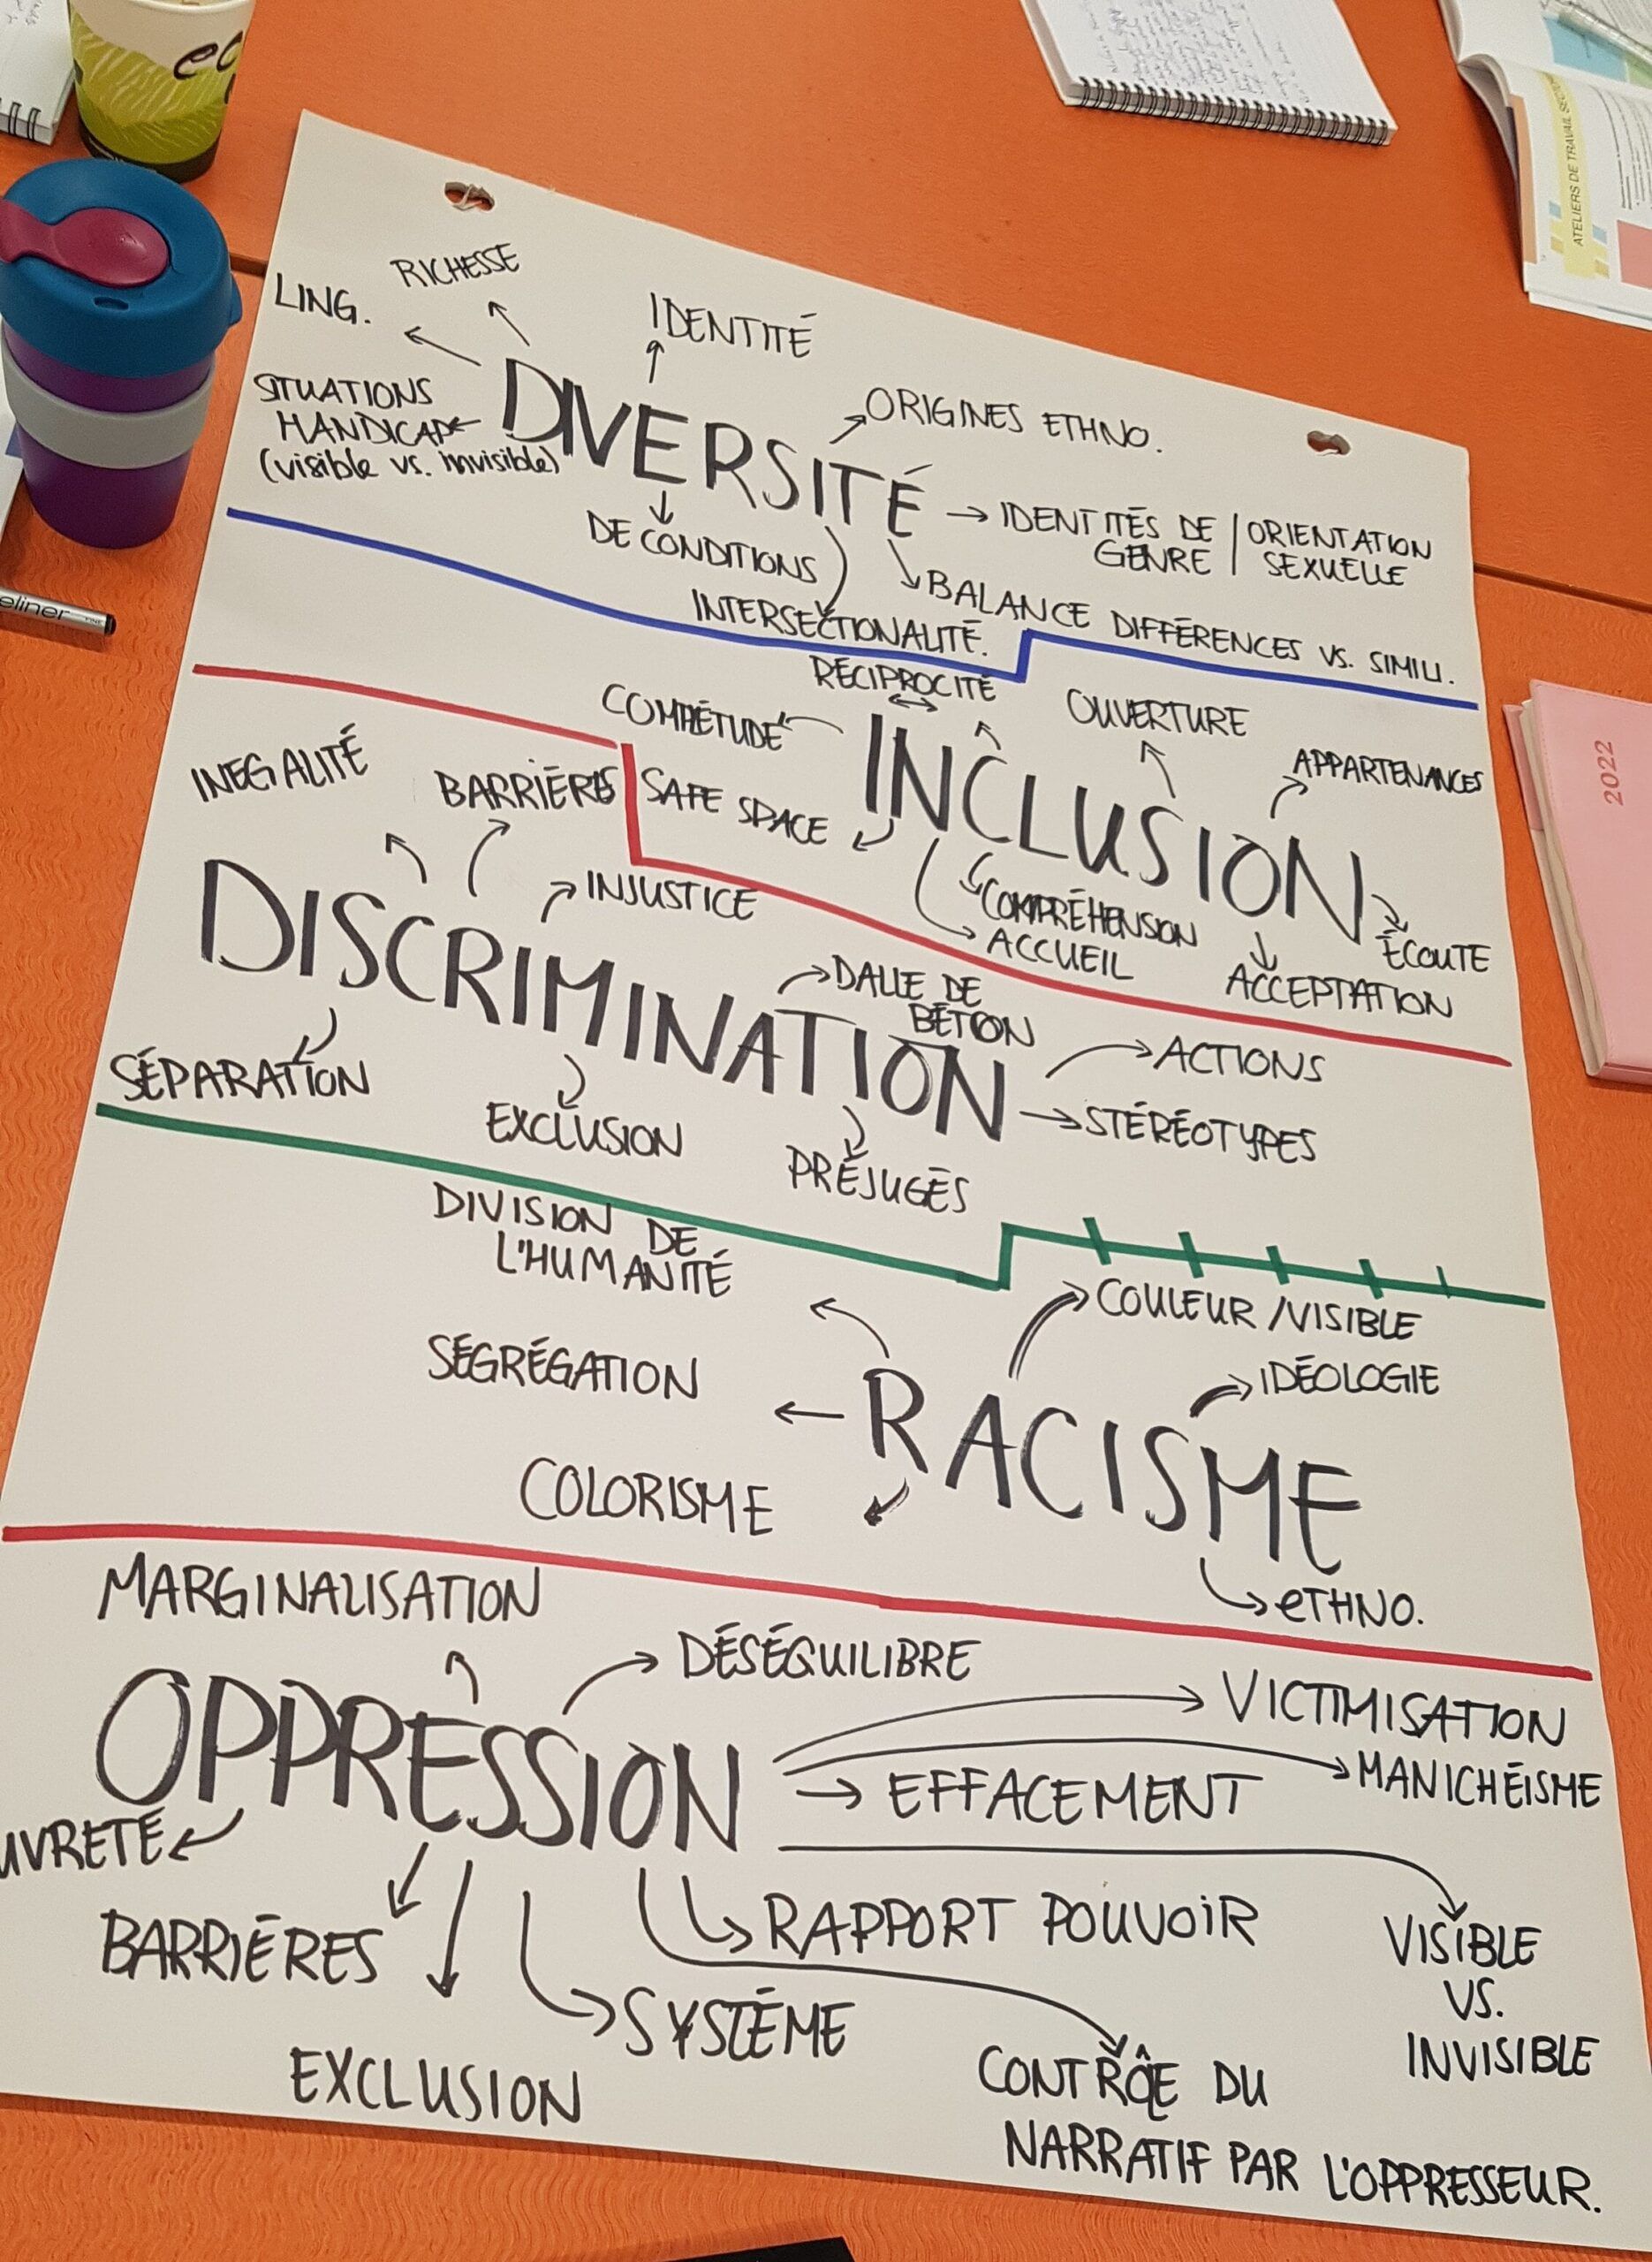 ATELIERS DE TRAVAIL
2022
eliner
RICHESSE
LING.
IDENTITÉ
SITUATIONS
HANDICAP
(visible vs. invisible)
DIVERSITÉ
ORIGINES ETHNO.
DE CONDITIONS
IDENTITÉS DE
GENRE
ORIENTATION
SEXUELLE
INTERSECTIONALITÉ.
BALANCE DIFFÉRENCES VS. SIMILI.
RÉCIPROCITÉ
COMPLÉTUDE
OUVERTURE
APPARTENANCES
SAFE SPACE
INCLUSION
COMPRÉHENSION
ACCUEIL
ÉCOUTE
ACCEPTATION
INEGALITÉ
BARRIÈRES
INJUSTICE
DISCRIMINATION
DALLE DE
BÉTON
ACTIONS
STÉRÉOTYPES
SÉPARATION
EXCLUSION
PRÉJUGÉS
DIVISION DE
L'HUMANITÉ
COULEUR /VISIBLE
SÉGRÉGATION
IDÉOLOGIE
RACISME
COLORISME
ETHNO.
MARGINALISATION
DÉSÉQUILIBRE
VICTIMISATION
OPPRESSION
MANICHÉISME
EFFACEMENT
UVRETÉ
RAPPORT POUVOIR
BARRIÈRES
VISIBLE
VS.
INVISIBLE
SYSTÈME
EXCLUSION
CONTRÔLE DU
NARRATIF PAR L'OPPRESSEUR.